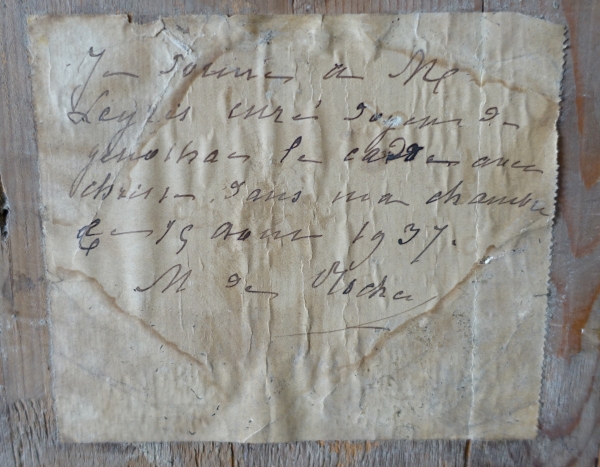 Je donne a Mr
Leyris curé doyen de
genolhac le cadre avec
christ dans ma chambre
le 15 aout 1937.
M de Roche